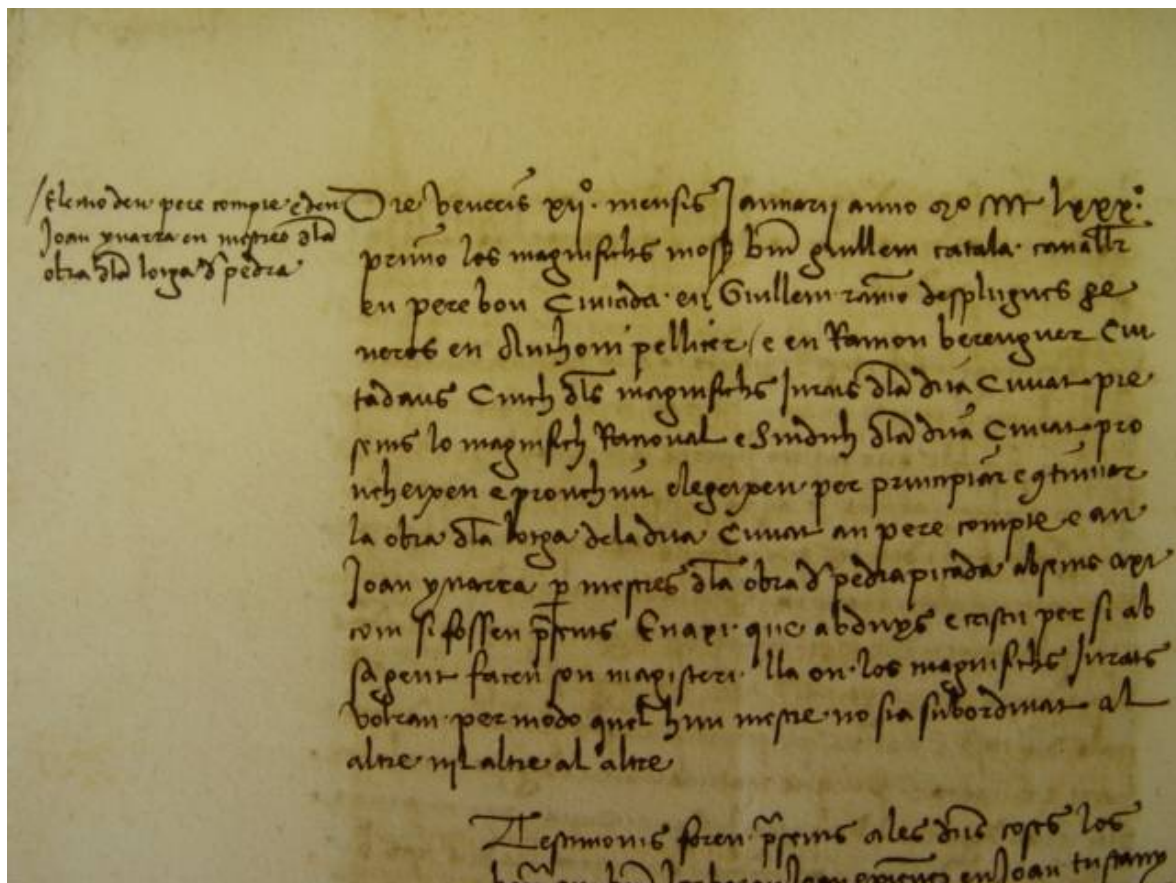 Eleccio den pere compte e den
Joan yvarra en mestres dla
obra dla lotga d pedra
Die veneris xii. mensis Januarii anno MCCCC lxxx.
primo los magnifichs guillem catala. cavaller
en pere bou Ciutada. en Guillem ramo despluges ge
neros en Anthoni pellicer / e en Ramon berenguer Ciu
tadans Cinch dls magnifichs Jurats dla dita Ciutat pre
sents lo magnifich Racional e Sindich dla dita Ciutat pro
vehexen e elegexen per principiar e continuar
la obra dla lotga dela dita Ciutat an pere compte e an
Joan yvarra p mestres dla obra d pedra picada absents axi
com si fossen psents Enaxi que abduys e cascu per si ab
sa gent facen son magisteri. lla on los magnifichs Jurats
volran per modo quel hun mestre no sia subordinat al
altre nil altre al altre
Testimonis foren psents ales dites coses los
en Joan